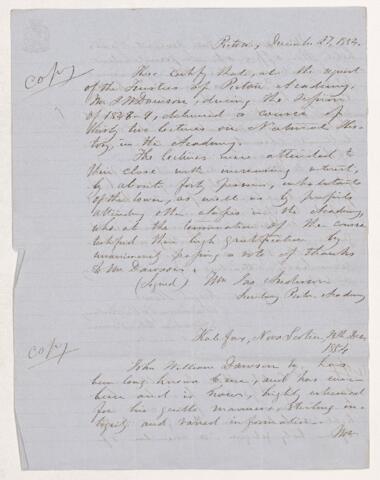 Pictou, December 27, 1854.
copy
These certify that, at the request
of the Trustees of Pictou Academy,
Mr J W Dawson, during the session
of 1848-9, delivered a course of
thirty two lectures on Natural His-
tory, in the Academy.
The lectures were attended to
their close with increasing interest,
by about forty persons, inhabitants
of the town, as well as by pupils
attending other classes in the Academy,
who at the termination of the course
testified their high gratification by
unanimously passing a vote of thanks
to Mr Dawson.
(Signed) Wm Jas Anderson
Secretary Pictou Academy
Halifax, Nova Scotia, Decr
1854
copy
John William Dawson has
been long known to me, and has ever
been and is now, highly esteemed
for his gentle manners, sterling in-
tegrity and varied information.